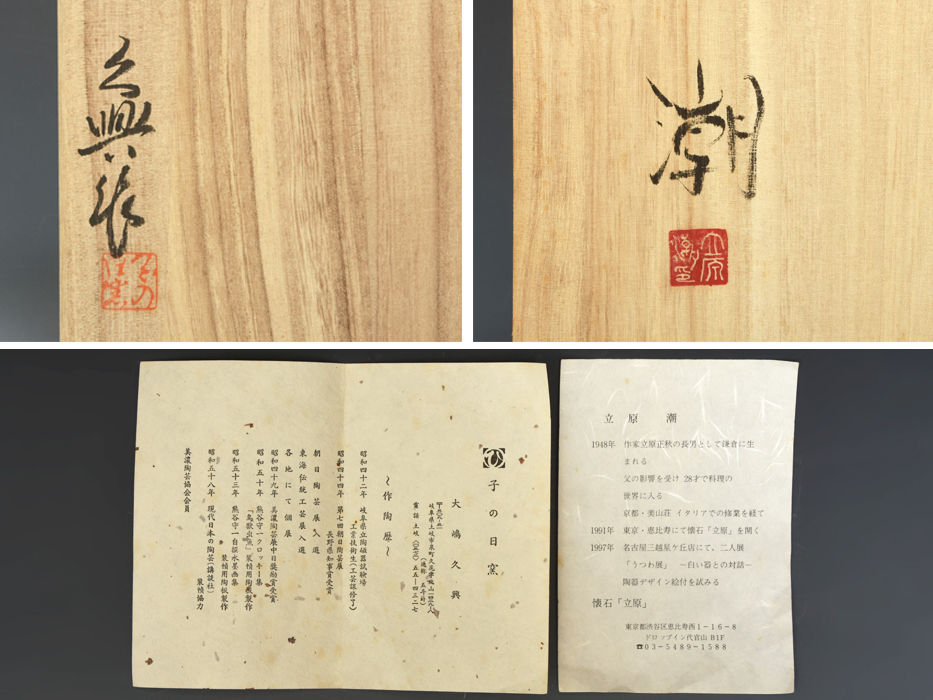 久興作
潮
立原
潮印
子の日窯
大嶋久興
岐阜県土岐市泉町久尻
～作陶歴～
昭和四十二年 岐阜県立陶磁器試験場
工業技術生(工芸課修了)
昭和四十四年 第七回朝日陶芸展
長野県知事賞受賞
朝日陶芸展入選
東海伝統工芸展入選
各地にて個展
昭和四十九年 美濃陶芸展中日奨励賞受賞
昭和五十年 熊谷守一クロッキー集
「鳥獣虫魚」装幀用陶板製作
昭和五十三年 熊谷守一自撰水墨画集
装幀用陶板製作
昭和五十八年 現代日本の陶芸(講談社)
装幀協力
美濃陶芸協会会員
立原 潮
1948年 作家立原正秋の長男として鎌倉に生
まれる
父の影響を受け 28才で料理の
世界に入る
京都・美山荘 イタリアでの修業を経て
1991年 東京・恵比寿にて懐石「立原」を開く
1997年 名古屋三越星ケ丘店にて、二人展
「うつわ展」 ―白い器との対話―
陶器デザイン絵付を試みる
懐石「立原」
東京都渋谷区恵比寿西1－16－8
ドロップイン代官山 B1F
☎03－5489－1588